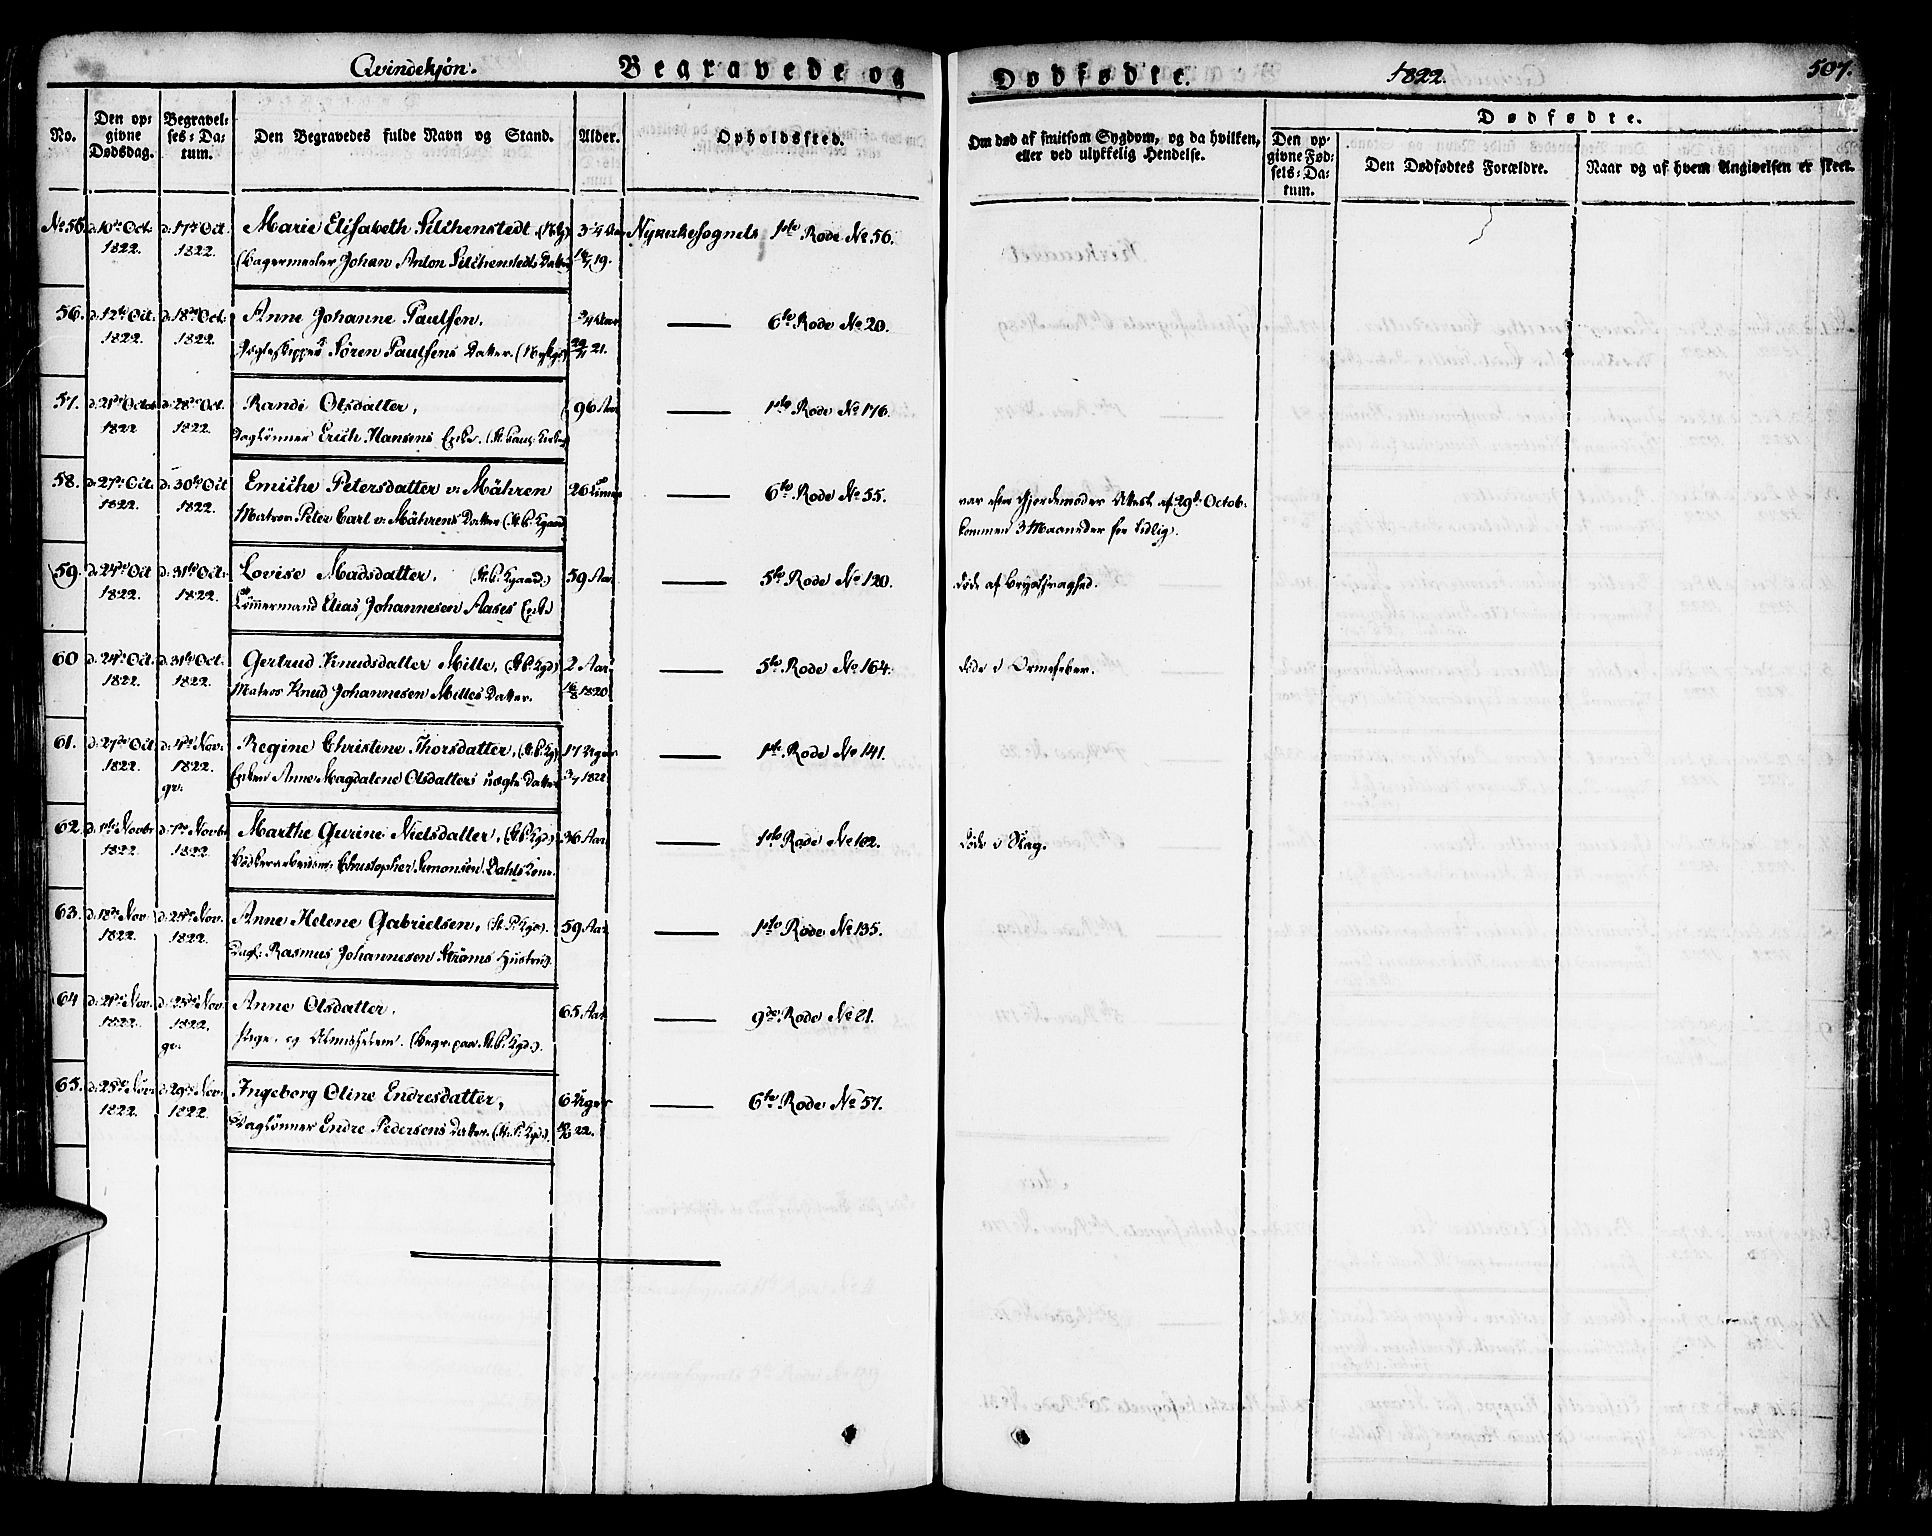 Qvindekjøn.
Begravede og
Dødfødte.
1822.
507.
No.
Den opgivne Dødsdag.
Begravelses-Datum.
Den Begravedes fulde Navn og Stand.
Alder.
Opholdssted.
Om død af smitsom Sygdom, og da hvilken,
eller ved ulykkelig Hendelse.
Dødfødte.
Den opgivne Fødsels-Datum.
Den Dødfødtes Forældre.
Naar og af hvem Angivelsen er skeet.
No 55. d: 10de Oct. d: 17de Oct Marie Elisabeth Silchenstedt 3 1/4 Nykirkesognets 1ste Rode No 56.
1822. 1822. Bagermester Johan Anton Silchenstedts Datter 19.
56. d: 12te Oct: d: 18de Oct: Anne Johanne Paulsen. 3/4 Aar 6te Rode No 20.
1822. 1822. Søren Paulsens Datter. 21.
57. d: 21de Octob d: 28de Oct. Randi Olsdatter, 96 Aar 1ste Rode No 176.
1822 1822. Daglønner Erich Hansens Enke.
58. d: 27de Oct. d: 30te Oct Emiche Petersdatter v: Mähren 26 Timer 6te Rode No 55. var efter Gjordemoder Attest af 29de Octob:
1822. 1822. Matros Peter Carl v: Mährens Datter kommen 3 Maaneder for tidlig.
59. d: 24de Oct d: 31te Oct: Lovise Madsdatter. 59 Aar 5te Rode No 120. døde af Brystsvaghed.
1822. 1822. Tømmermand Elias Johannesen Aases Enke
60 d: 24de Oct. d: 31te Oct: Gertrud Knudsdatter Mille, 2 Aar 5te Rode No 164. døde i Ormefeber.
1822. 1822. Matros Knud Johannesen Milles Datter. 16/8 1820
61. d: 27de Oct d: 4de Nov: Regine Christine Thorsdatter, 17 Uger 1ste Rode No 141.
1822. 1822. Enken Anne Magdalene Olsdatters uægte Datter 3/7 1822
62. d: 1ste Novbr d: 7de Novbr Marthe Gurine Nielsdatter, 36 Aar 1ste Rode No 102. døde i Slag.
1822. 1822. Bødkerarbeidsm: Christopher Simonsen Dahls Kone.
63. d: 18de Nov: d: 25de Nov. Anne Helene Gabrielsen, 59 Aar 1ste Rode No 135.
1822. 1822. Dagl: Rasmus Johannesen Strøms Hustrue.
64 d: 21de Nov: d: 25de Nov: Anne Olsdatter, 65 Aar 9de Rode No 21.
1822. 1822. Pige,
65. d: 25de Nov: d: 29de Nov: Ingeborg Oline Endresdatter, 6 Uger 6te Rode No 57.
1822. 1822. Daglønner Endre Pedersens Datter. 22.